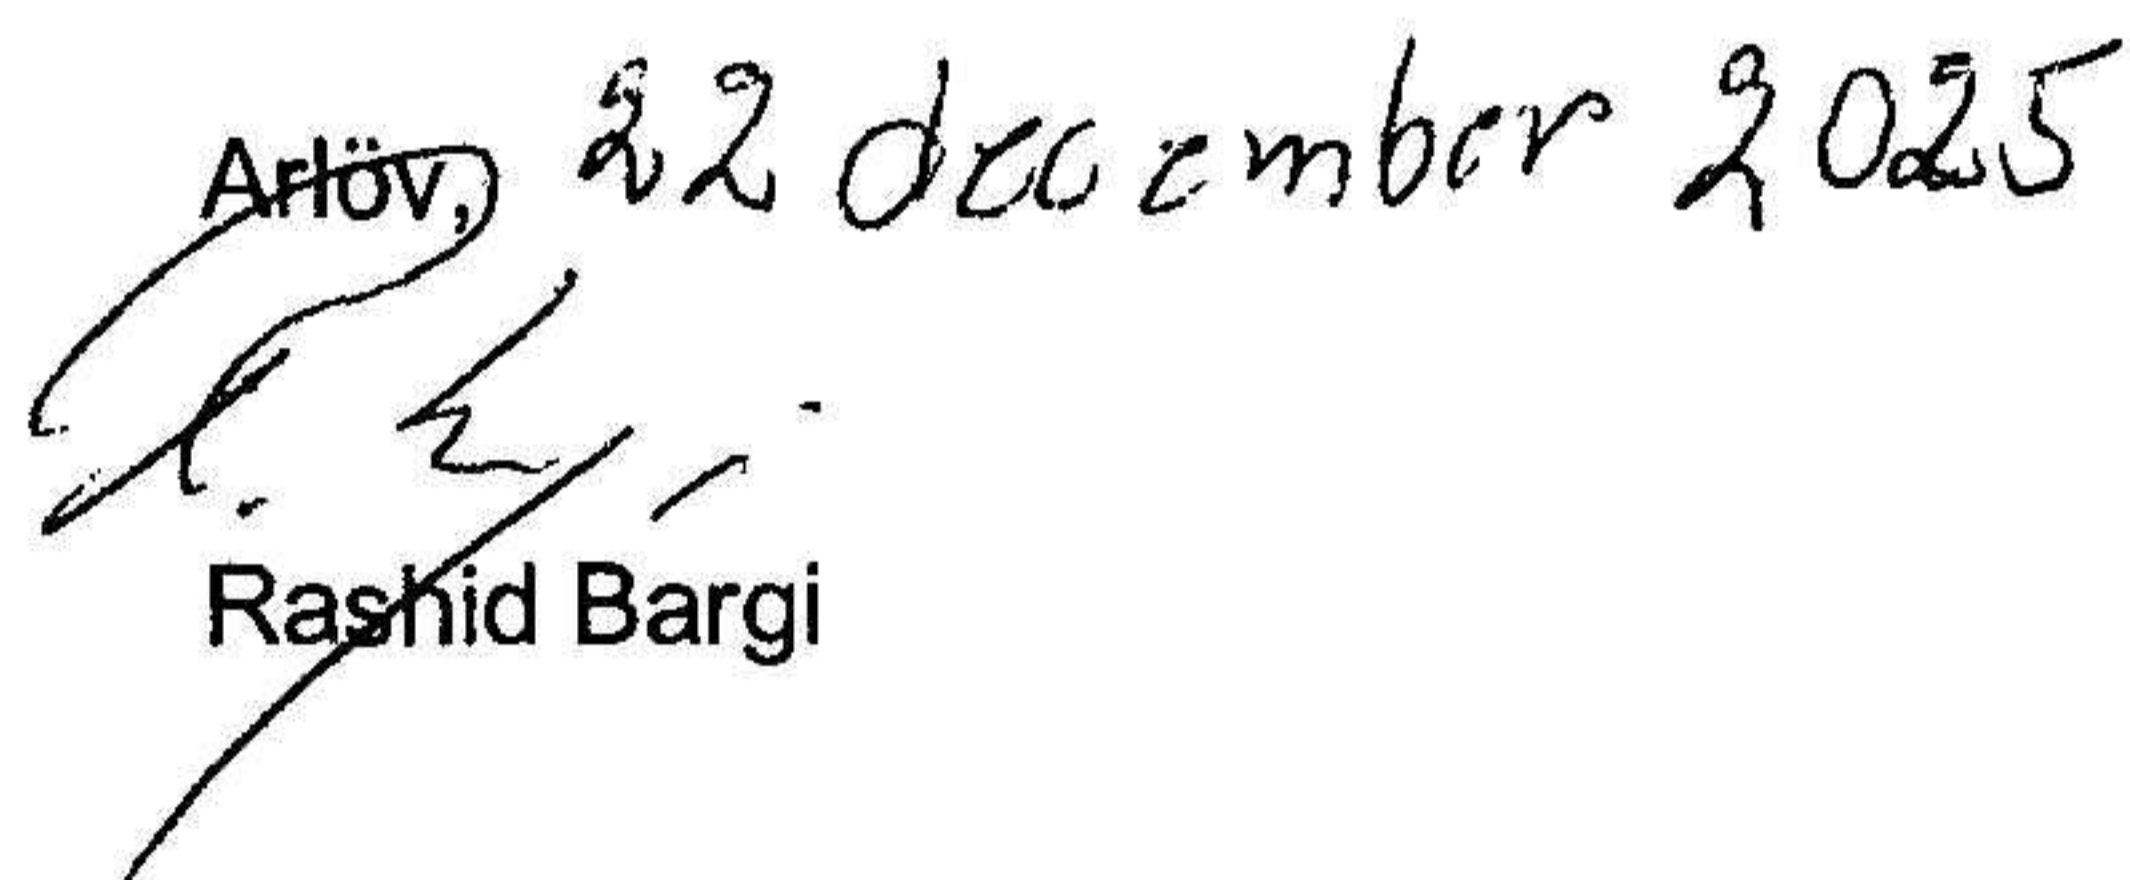 Arlöv, 22 december 2025
Rashid Bargi